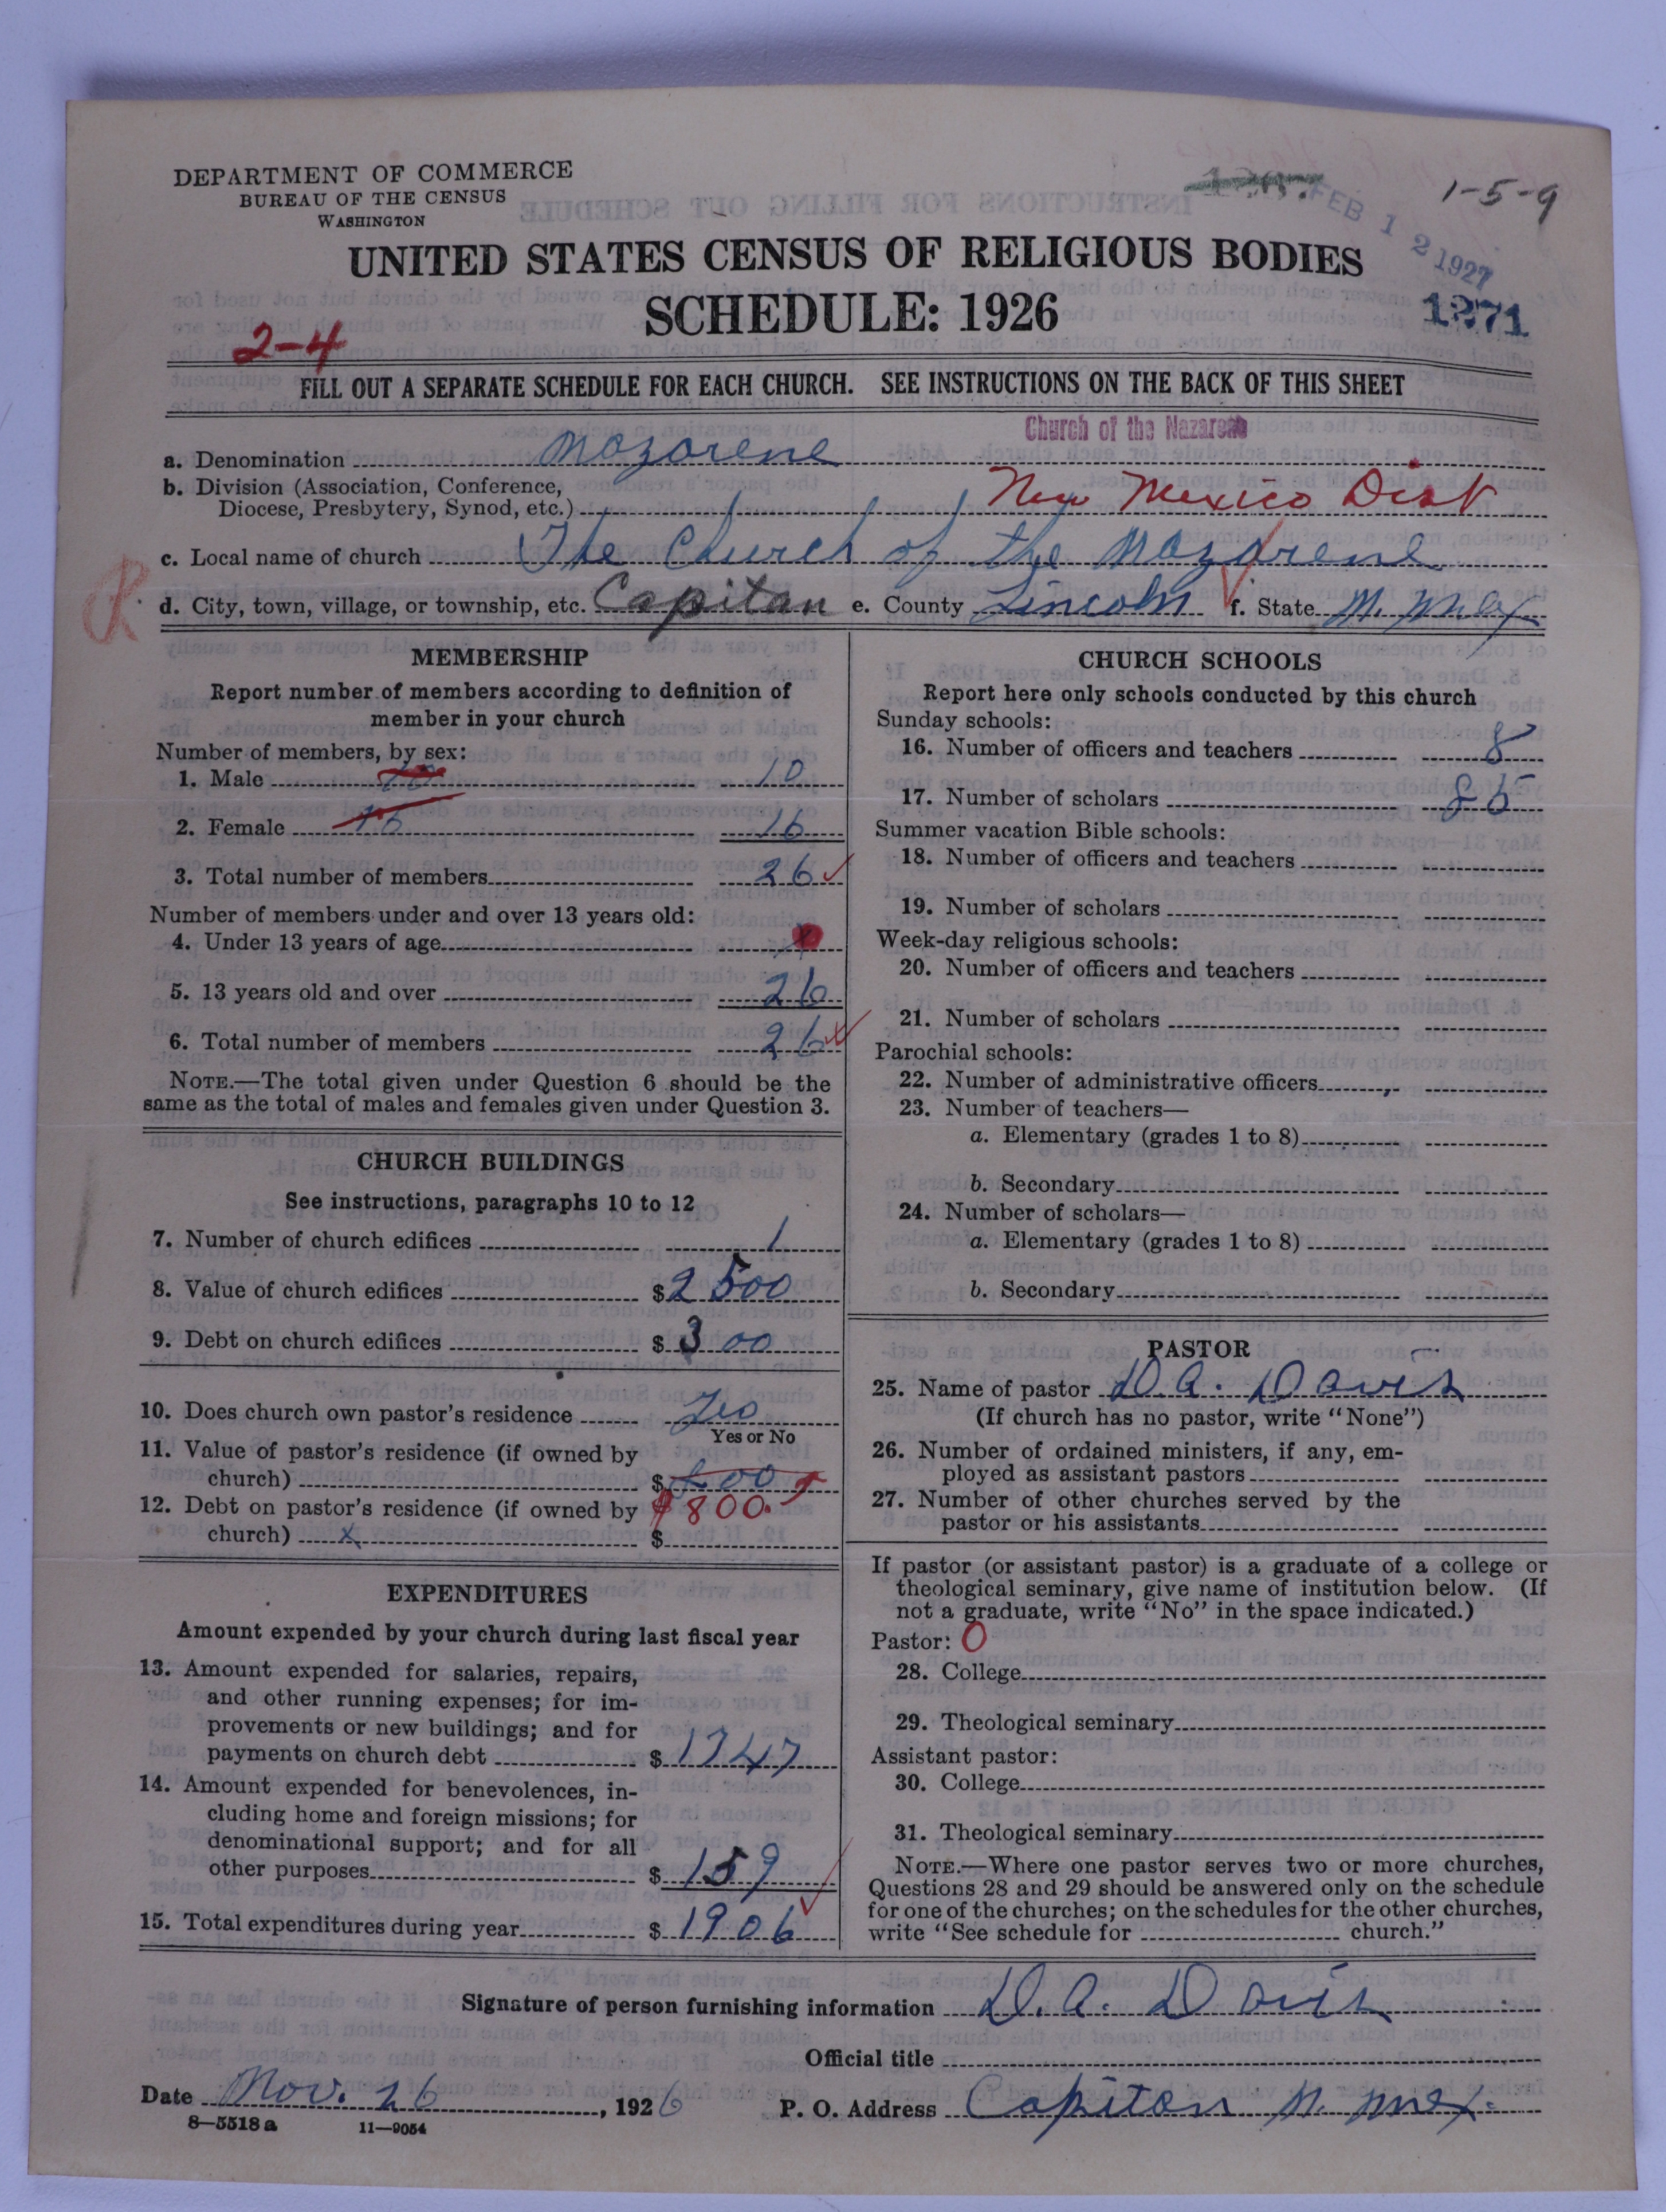 DEPARTMENT OF COMMERCE
BUREAU OF THE CENSUS
WASHINGTON
1-5-9
FEB 12 1927
UNITED STATES CENSUS OF RELIGIOUS BODIES
SCHEDULE: 1926
1271
2-4
FILL OUT A SEPARATE SCHEDULE FOR EACH CHURCH. SEE INSTRUCTIONS ON THE BACK OF THIS SHEET
Church of the Nazarene
a. Denomination Nazarene
b. Division (Association, Conference,
Diocese, Presbytery, Synod, etc.) New Mexico Dist
c. Local name of church The Church of the Nazarene
d. City, town, village, or township, etc. Capitan e. County Lincoln f. State N. Mex
MEMBERSHIP
Report number of members according to definition of
member in your church
Number of members, by sex:
1. Male 10
2. Female 16 16
3. Total number of members 26
Number of members under and over 13 years old:
4. Under 13 years of age
5. 13 years old and over 26
6. Total number of members 26
NOTE.—The total given under Question 6 should be the
same as the total of males and females given under Question 3.
CHURCH BUILDINGS
See instructions, paragraphs 10 to 12
7. Number of church edifices 1
8. Value of church edifices $2500
9. Debt on church edifices $300
10. Does church own pastor's residence Yes
Yes or No
11. Value of pastor's residence (if owned by
church) $800
12. Debt on pastor's residence (if owned by $800.
church) x $
EXPENDITURES
Amount expended by your church during last fiscal year
13. Amount expended for salaries, repairs,
and other running expenses; for im-
provements or new buildings; and for
payments on church debt $1747
14. Amount expended for benevolences, in-
cluding home and foreign missions; for
denominational support; and for all
other purposes $159
15. Total expenditures during year $1906
CHURCH SCHOOLS
Report here only schools conducted by this church
Sunday schools:
16. Number of officers and teachers 8
17. Number of scholars 85
Summer vacation Bible schools:
18. Number of officers and teachers
19. Number of scholars
Week-day religious schools:
20. Number of officers and teachers
21. Number of scholars
Parochial schools:
22. Number of administrative officers
23. Number of teachers—
a. Elementary (grades 1 to 8)
b. Secondary
24. Number of scholars—
a. Elementary (grades 1 to 8)
b. Secondary
PASTOR
25. Name of pastor D. A. Davis
(If church has no pastor, write "None")
26. Number of ordained ministers, if any, em-
ployed as assistant pastors
27. Number of other churches served by the
pastor or his assistants
If pastor (or assistant pastor) is a graduate of a college or
theological seminary, give name of institution below. (If
not a graduate, write "No" in the space indicated.)
Pastor: 0
28. College
29. Theological seminary
Assistant pastor:
30. College
31. Theological seminary
NOTE.—Where one pastor serves two or more churches,
Questions 28 and 29 should be answered only on the schedule
for one of the churches; on the schedules for the other churches,
write "See schedule for church."
Signature of person furnishing information D. A. Davis
Official title
Date Nov. 26, 1926 P. O. Address Capitan N. Mex.
8—5518 a 11—9054